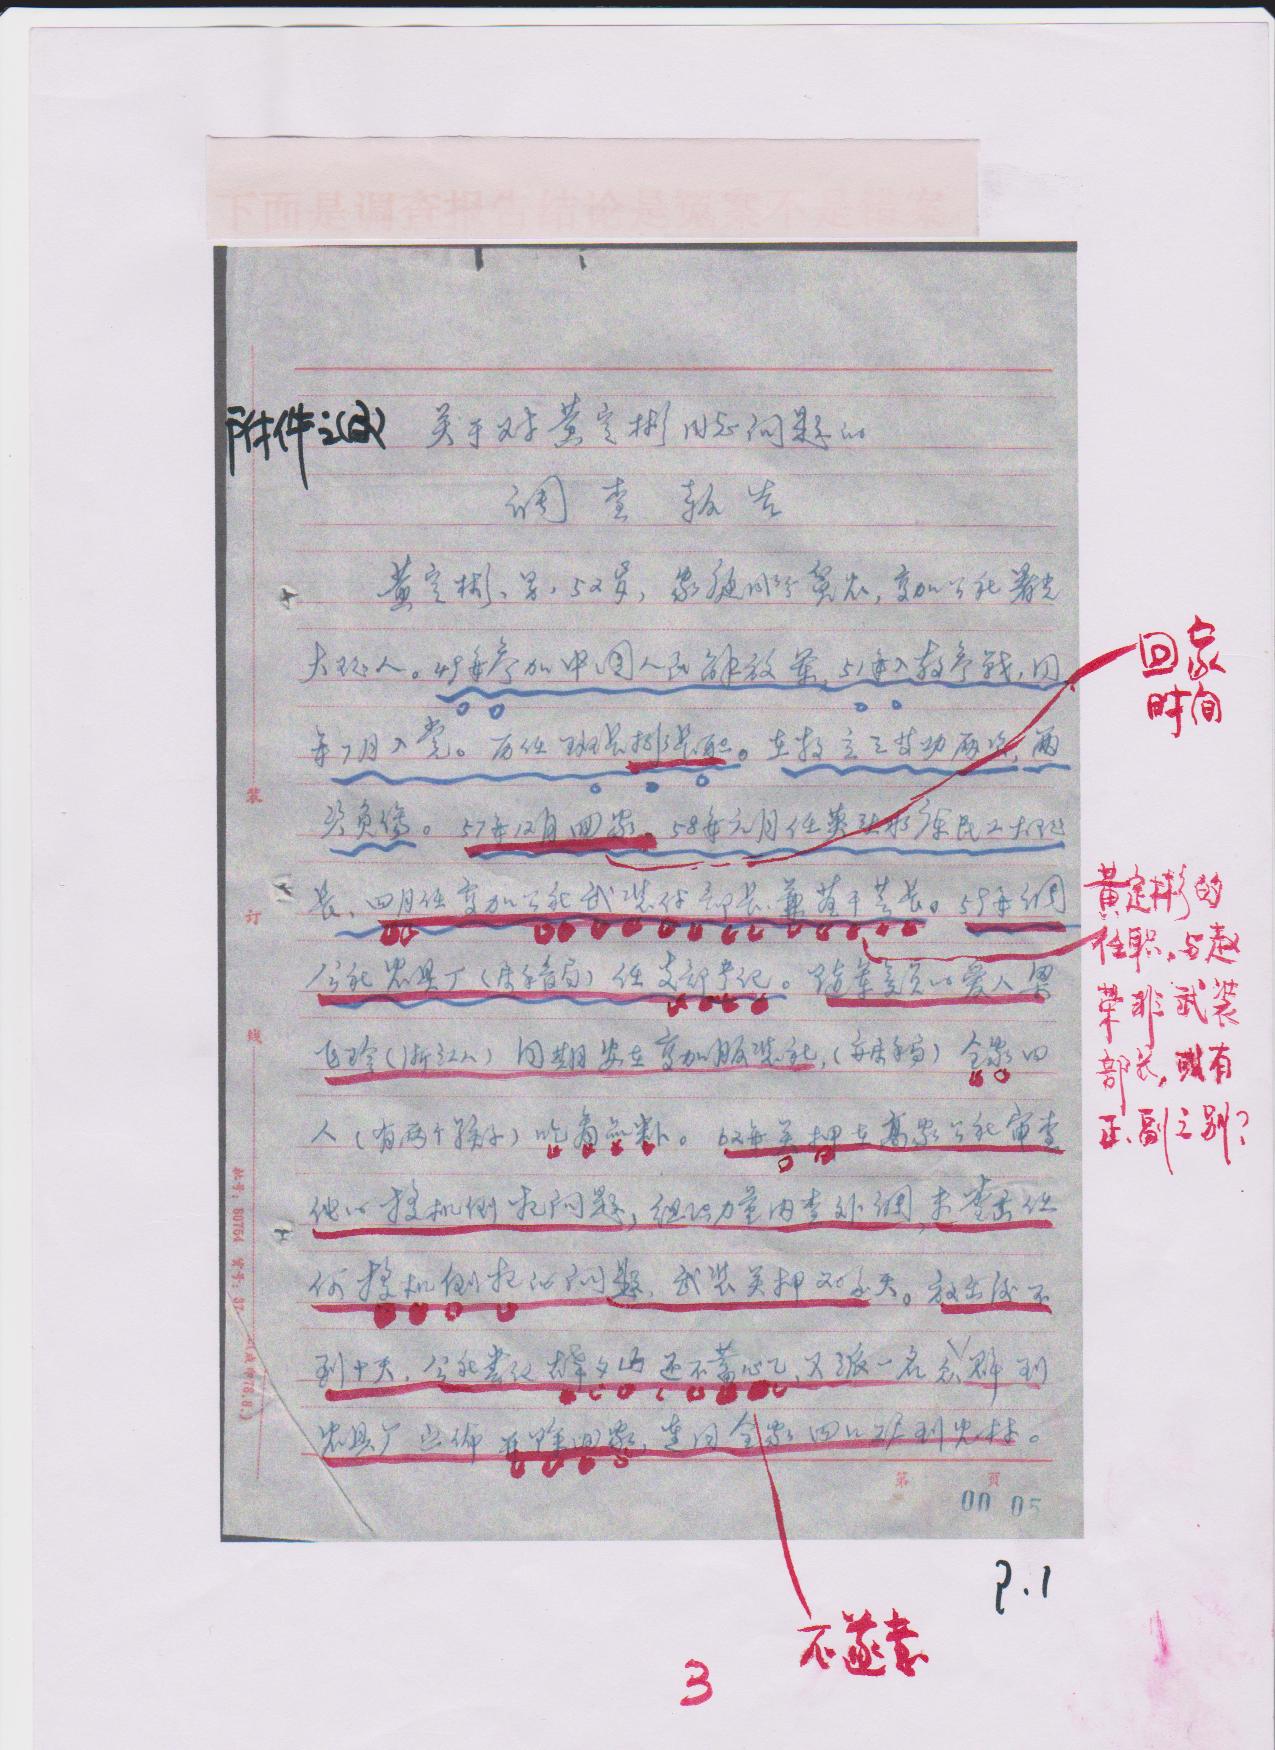 下面是调查报告结论是冤案不是错案
附件之(2)
关于对黄定彬同志问题的
调查报告
黄定彬、男、52岁，家庭成分贫农，变加公社署光
大队人。49年参加中国人民解放军，51年入朝参战，同
年7月入党。历任班长排长职。在朝立三等功两次，两
次负伤。57年12月回家。58年元月任英弘水库民工大队
长、四月任变加公社武装付部长兼苗干营长。59年调
公社农具厂(床单局)任支部书记。随军家员的爱人梁
飞珍(浙江人)同期安在变加服装社，全家四
人(有两个孩子)吃商品粮。62年关押在高家公社审查
他的投机倒把问题，组织力量内查外调，未查出任
何投机倒把的问题，武装关押20多天。放出后不
到十天，公社书记还不蓄心，又派一名到
农具厂宣佈开除回家，连同全家四口赶到农村。
回家
时间
黄定彬的
任职，与赵
荣非武装
部长，或有
正、副之别？
不遂意
装
订
线
第 页
00 05
P.1
3